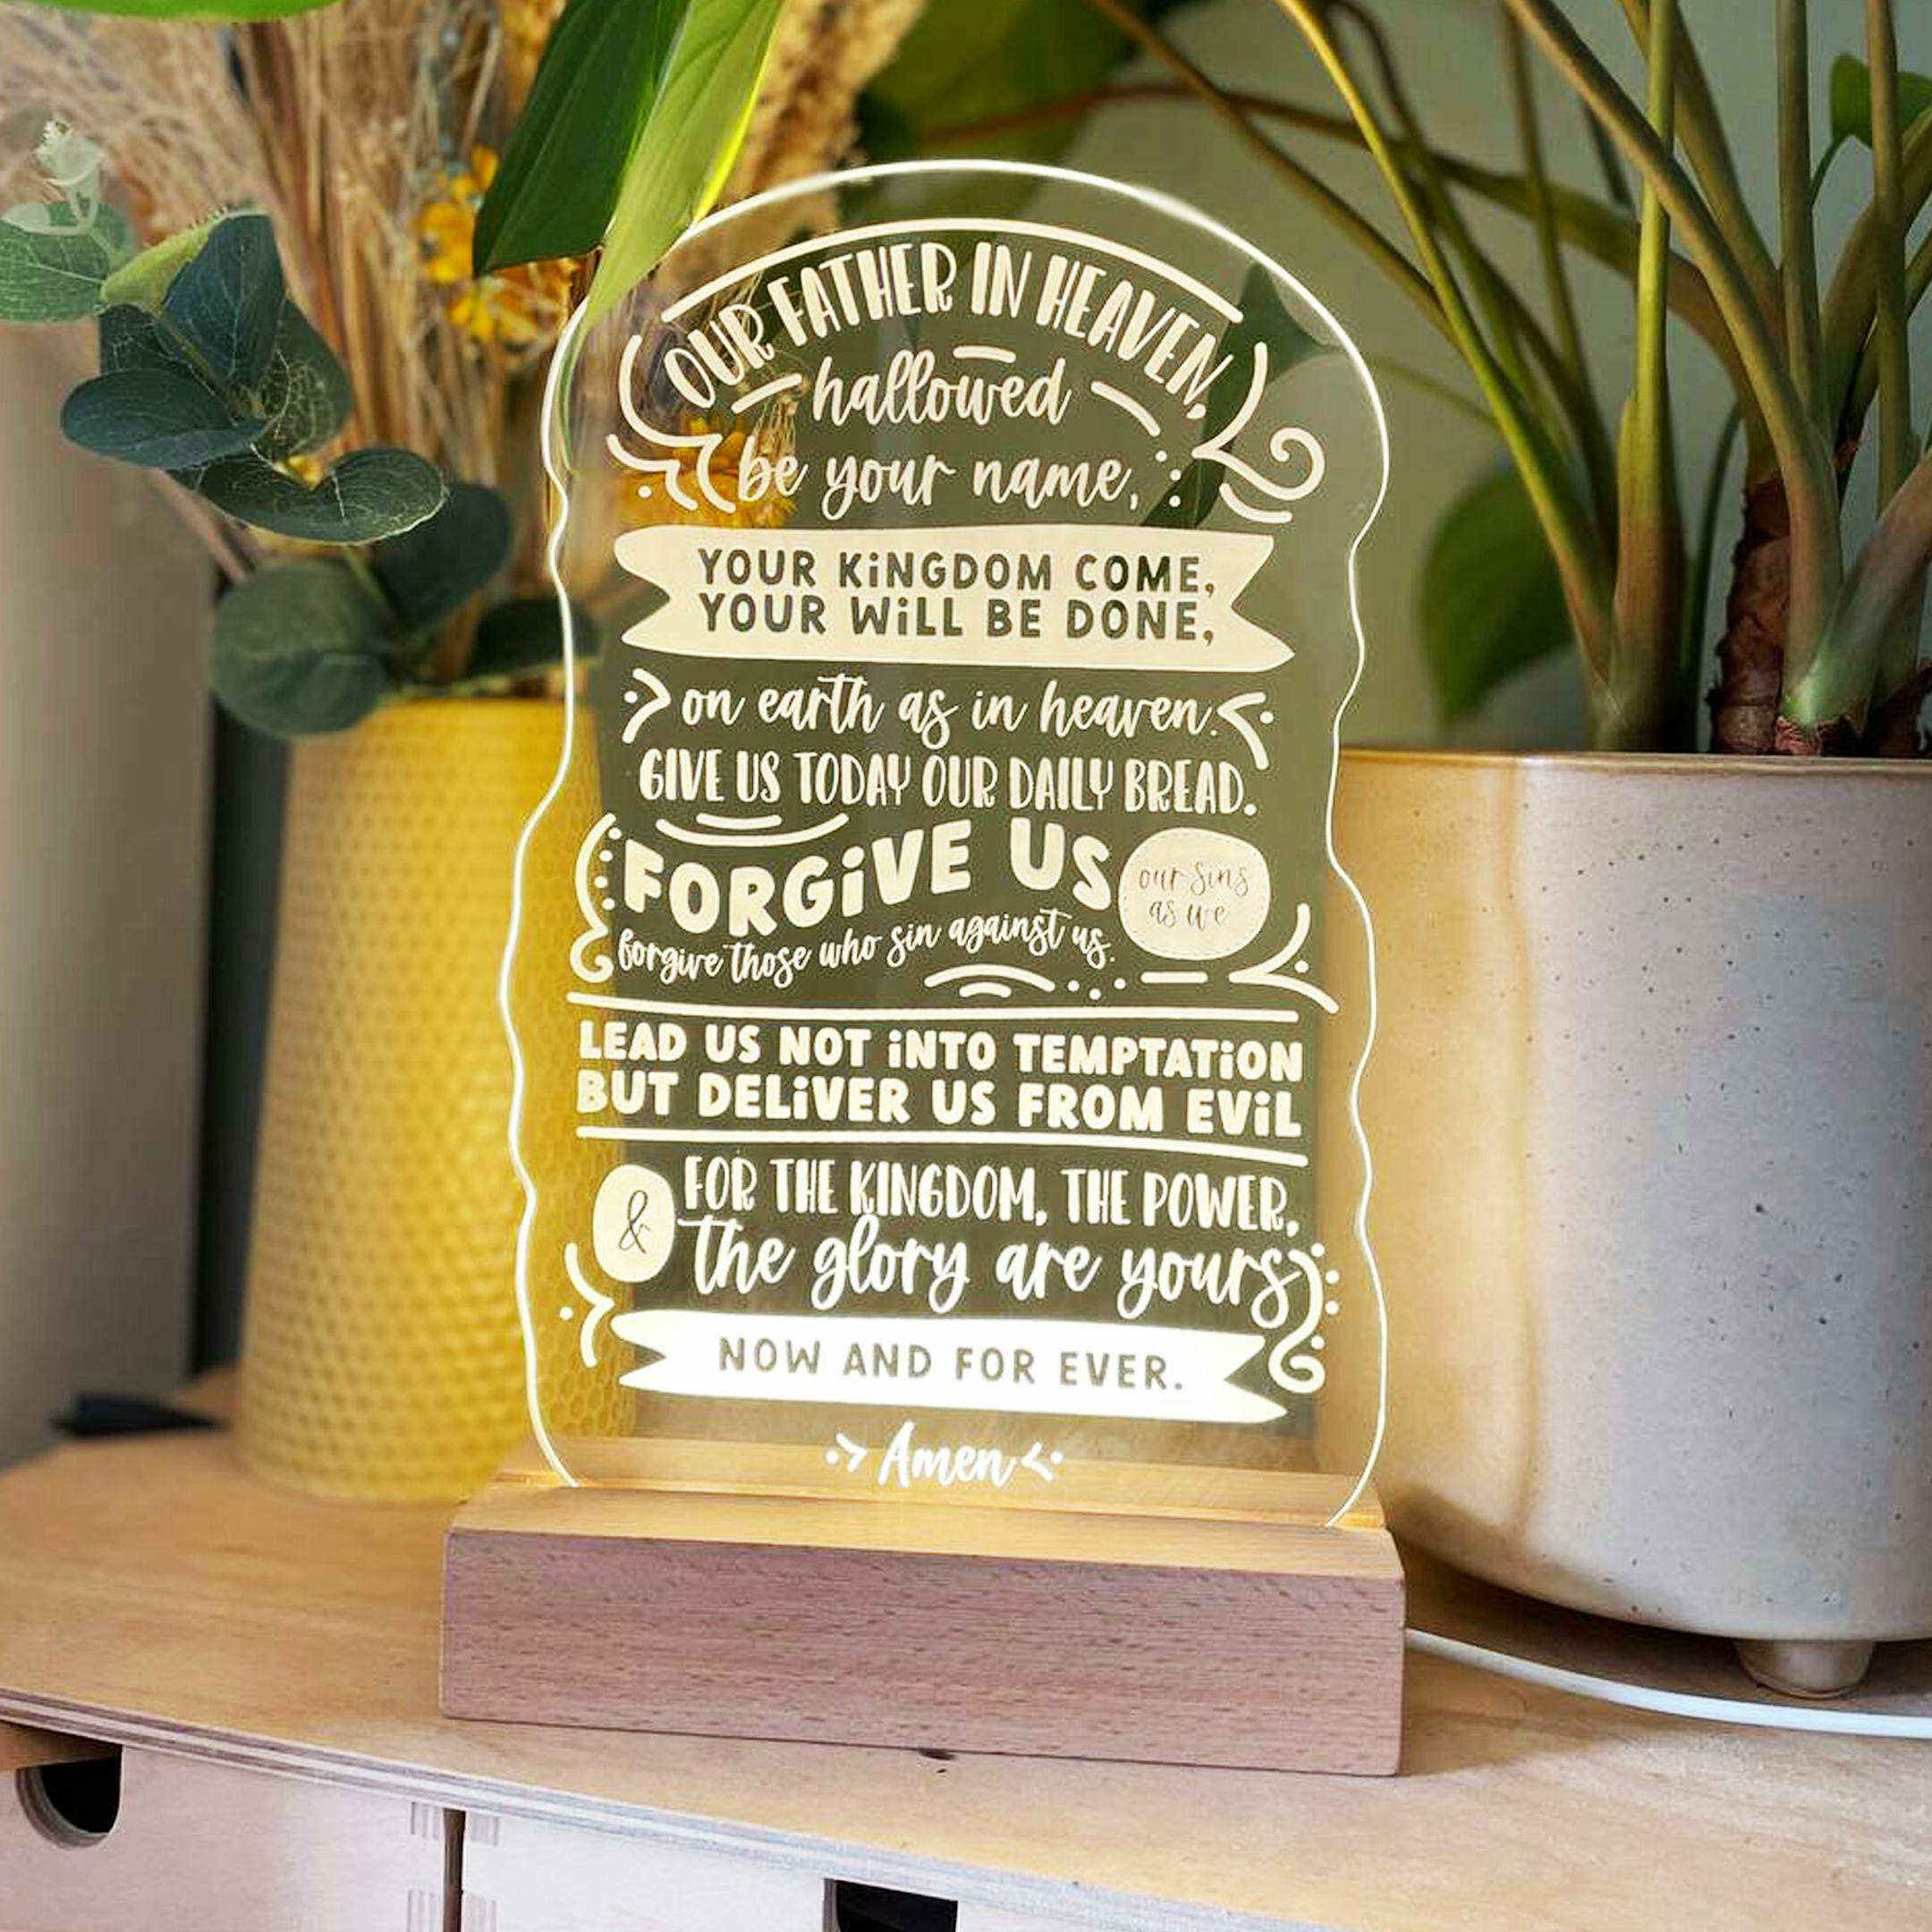 OUR FATHER IN HEAVEN,
hallowed
be your name,
YOUR KiNGDOM COME,
YOUR WiLL BE DONE,
on earth as in heaven.
GIVE US TODAY OUR DAILY BREAD.
FORGiVE US
our sins
as we
forgive those who sin against us.
LEAD US NOT iNTO TEMPTATiON
BUT DELiVER US FROM EViL
FOR THE KINGDOM, THE POWER,
& the glory are yours
NOW AND FOR EVER.
Amen